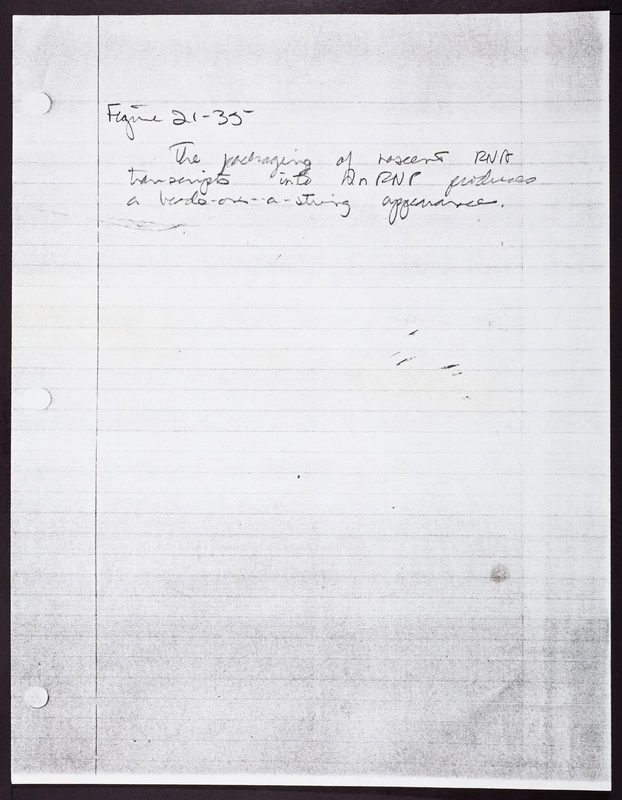 Figure 21-35
The packaging of nascent RNA
transcripts into hnRNP produces
a beads-on-a-string appearance.